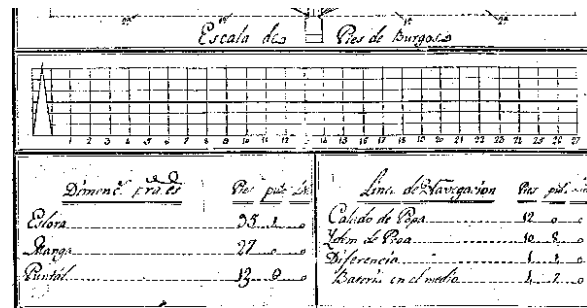 Escala de Pies de Burgos
1 2 3 4 5 6 7 8 9 10 11 12 14 15 16 17 18 19 20 21 22 23 24 25 26 27
Dimenc.^s pra.es Pies pul.
Eslora 95 1 0
Manga 27 0 0
Puntal 13 9 0
Linea de Navegacion Pies pul.
Calado de Popa 12 0
Idem de Proa 10 8
Diferencia 1
Bateria en el medio